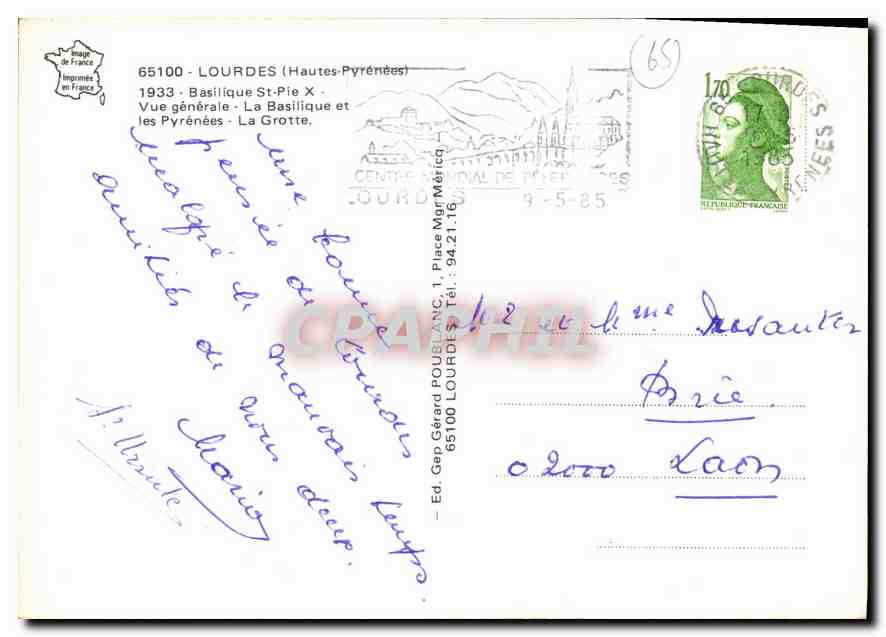 Image
de France
Imprimée
en France
65100 - LOURDES (Hautes-Pyrénées)
1933 - Basilique St-Pie X -
Vue générale - La Basilique et
les Pyrénées - La Grotte.
65
1,70
REPUBLIQUE FRANÇAISE
CENTRE MONDIAL DE PELERINAGES
LOURDES 9-5-85
une bonne
pensée de Lourdes
malgré le mauvais temps.
amitiés de nous deux.
Mario
— Ed. Gep Gérard POUBLANC, 1, Place Mgr Méricq —
65100 LOURDES Tél. : 94.21.16
et Mme
Brie
02000 Laon
CPAPHIL